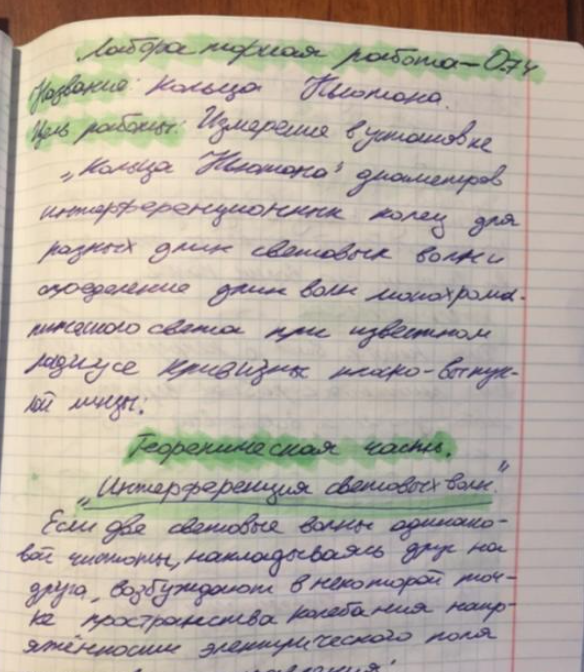 Лабораторная работа – 0.74
Название: Кольца Ньютона.
Цель работы: Измерение в установке
„Кольца Ньютона" диаметров
интерференционных колец для
разных длин световых волн и
определение длин волн монохрома-
тического света при известном
радиусе кривизны плоско-выпук-
лой линзы.
Теоретическая часть.
„Интерференция световых волн."
Если две световые волны одинако-
вой частоты, накладываясь друг на
друга, возбуждают в некоторой точ-
ке пространства колебания напр-
яжённости электрического поля